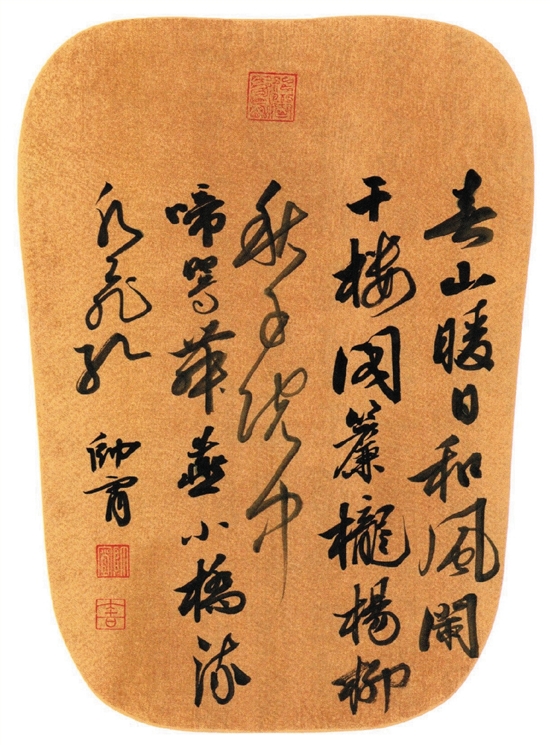 春山暖日和風闌
干樓閣簾櫳楊柳
秋千院中
啼鶯舞燕小橋流
水飛紅